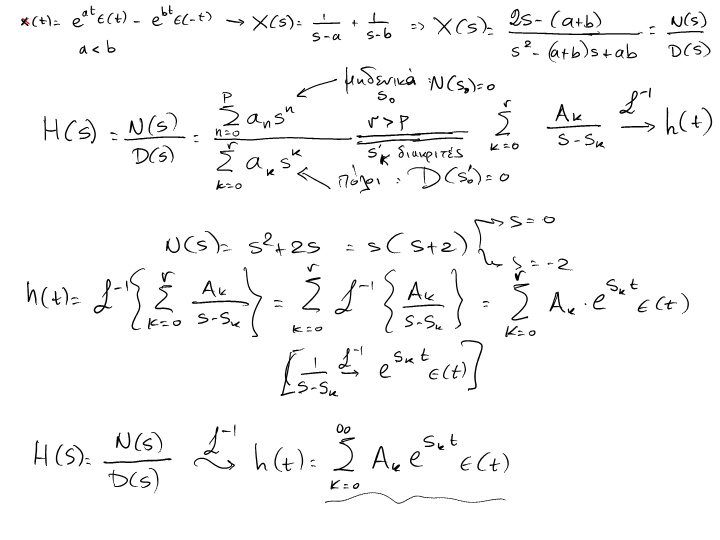 x(t)= e^{at}ε(t) - e^{bt}ε(-t) → X(s)= 1/(s-a) + 1/(s-b) => X(s)= (2s-(a+b))/(s²-(a+b)s+ab) = N(s)/D(s)
a<b
μηδενικά : N(s₀)=0
s₀
H(s) = N(s)/D(s) = (Σ_{n=0}^{P} aₙsⁿ)/(Σ_{k=0}^{r} aₖsᵏ) r>P Σ_{k=0}^{r} Aₖ/(s-sₖ) ℒ⁻¹→ h(t)
s'ₖ διακριτές
πόλοι : D(s₀')=0
N(s)= s²+2s = s(s+2) → s=0
→ s=-2
h(t)= ℒ⁻¹{Σ_{k=0}^{r} Aₖ/(s-sₖ)} = Σ_{k=0}^{r} ℒ⁻¹{Aₖ/(s-sₖ)} = Σ_{k=0}^{r} Aₖ·e^{sₖt} ε(t)
[1/(s-sₖ) ℒ⁻¹→ e^{sₖt} ε(t)]
H(s)= N(s)/D(s) ℒ⁻¹⤳ h(t)= Σ_{k=0}^{∞} Aₖ e^{sₖt} ε(t)